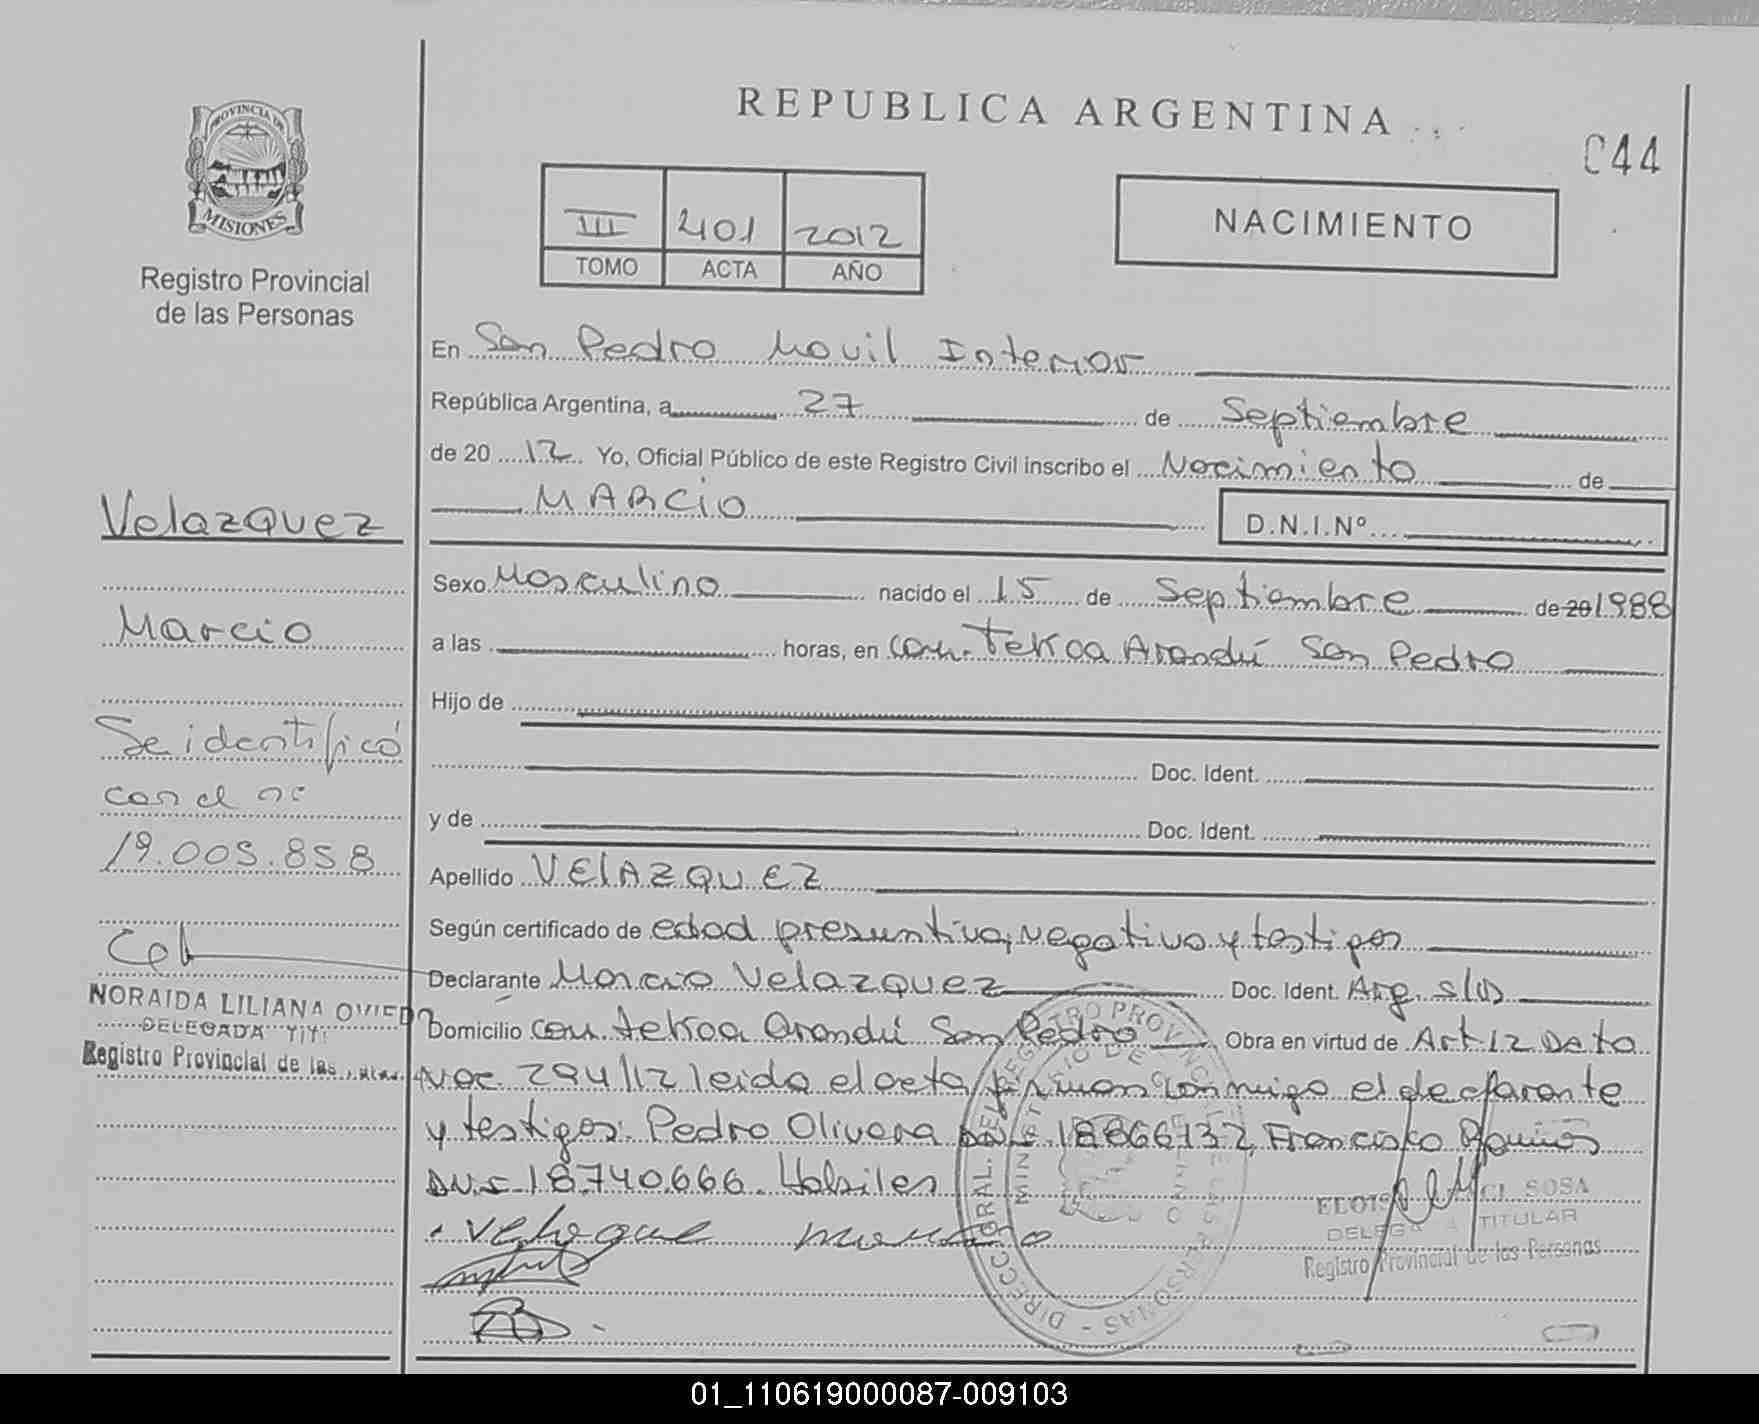 REPUBLICA ARGENTINA
C44
PROVINCIA DE
MISIONES
Registro Provincial
de las Personas
III 401 2012
TOMO ACTA AÑO
NACIMIENTO
En San Pedro Movil Interior
República Argentina, a 27 de Septiembre
de 20 12 Yo, Oficial Público de este Registro Civil inscribo el Nacimiento de
MARCIO
D.N.I.Nº
Velazquez
Marcio
Se identificó
con el nº
19.005.858
NORAIDA LILIANA OVIEDO
DELEGADA TIT
Registro Provincial de las
Sexo Masculino nacido el 15 de Septiembre de 20 1988
a las horas, en com. Tekoa Arandú San Pedro
Hijo de
Doc. Ident.
y de Doc. Ident.
Apellido VElAZQUEZ
Según certificado de edad presuntiva, negativo y testigos
Declarante Marcio Velazquez Doc. Ident. Arg. S/D
Domicilio com. tekoa Arandú San Pedro Obra en virtud de Art 12 Deto
Nac. 294/12 leida el acta firman conmigo el declarante
y testigos: Pedro Olivera DNI 18866132, Francisco
DNI 18.740.666. Habiles
DIRECC GRAL. DEL REGISTRO PROVINCIAL DE LAS PERSONAS
SOSA
DELEGADA TITULAR
Registro Provincial de las Personas
01_110619000087-009103